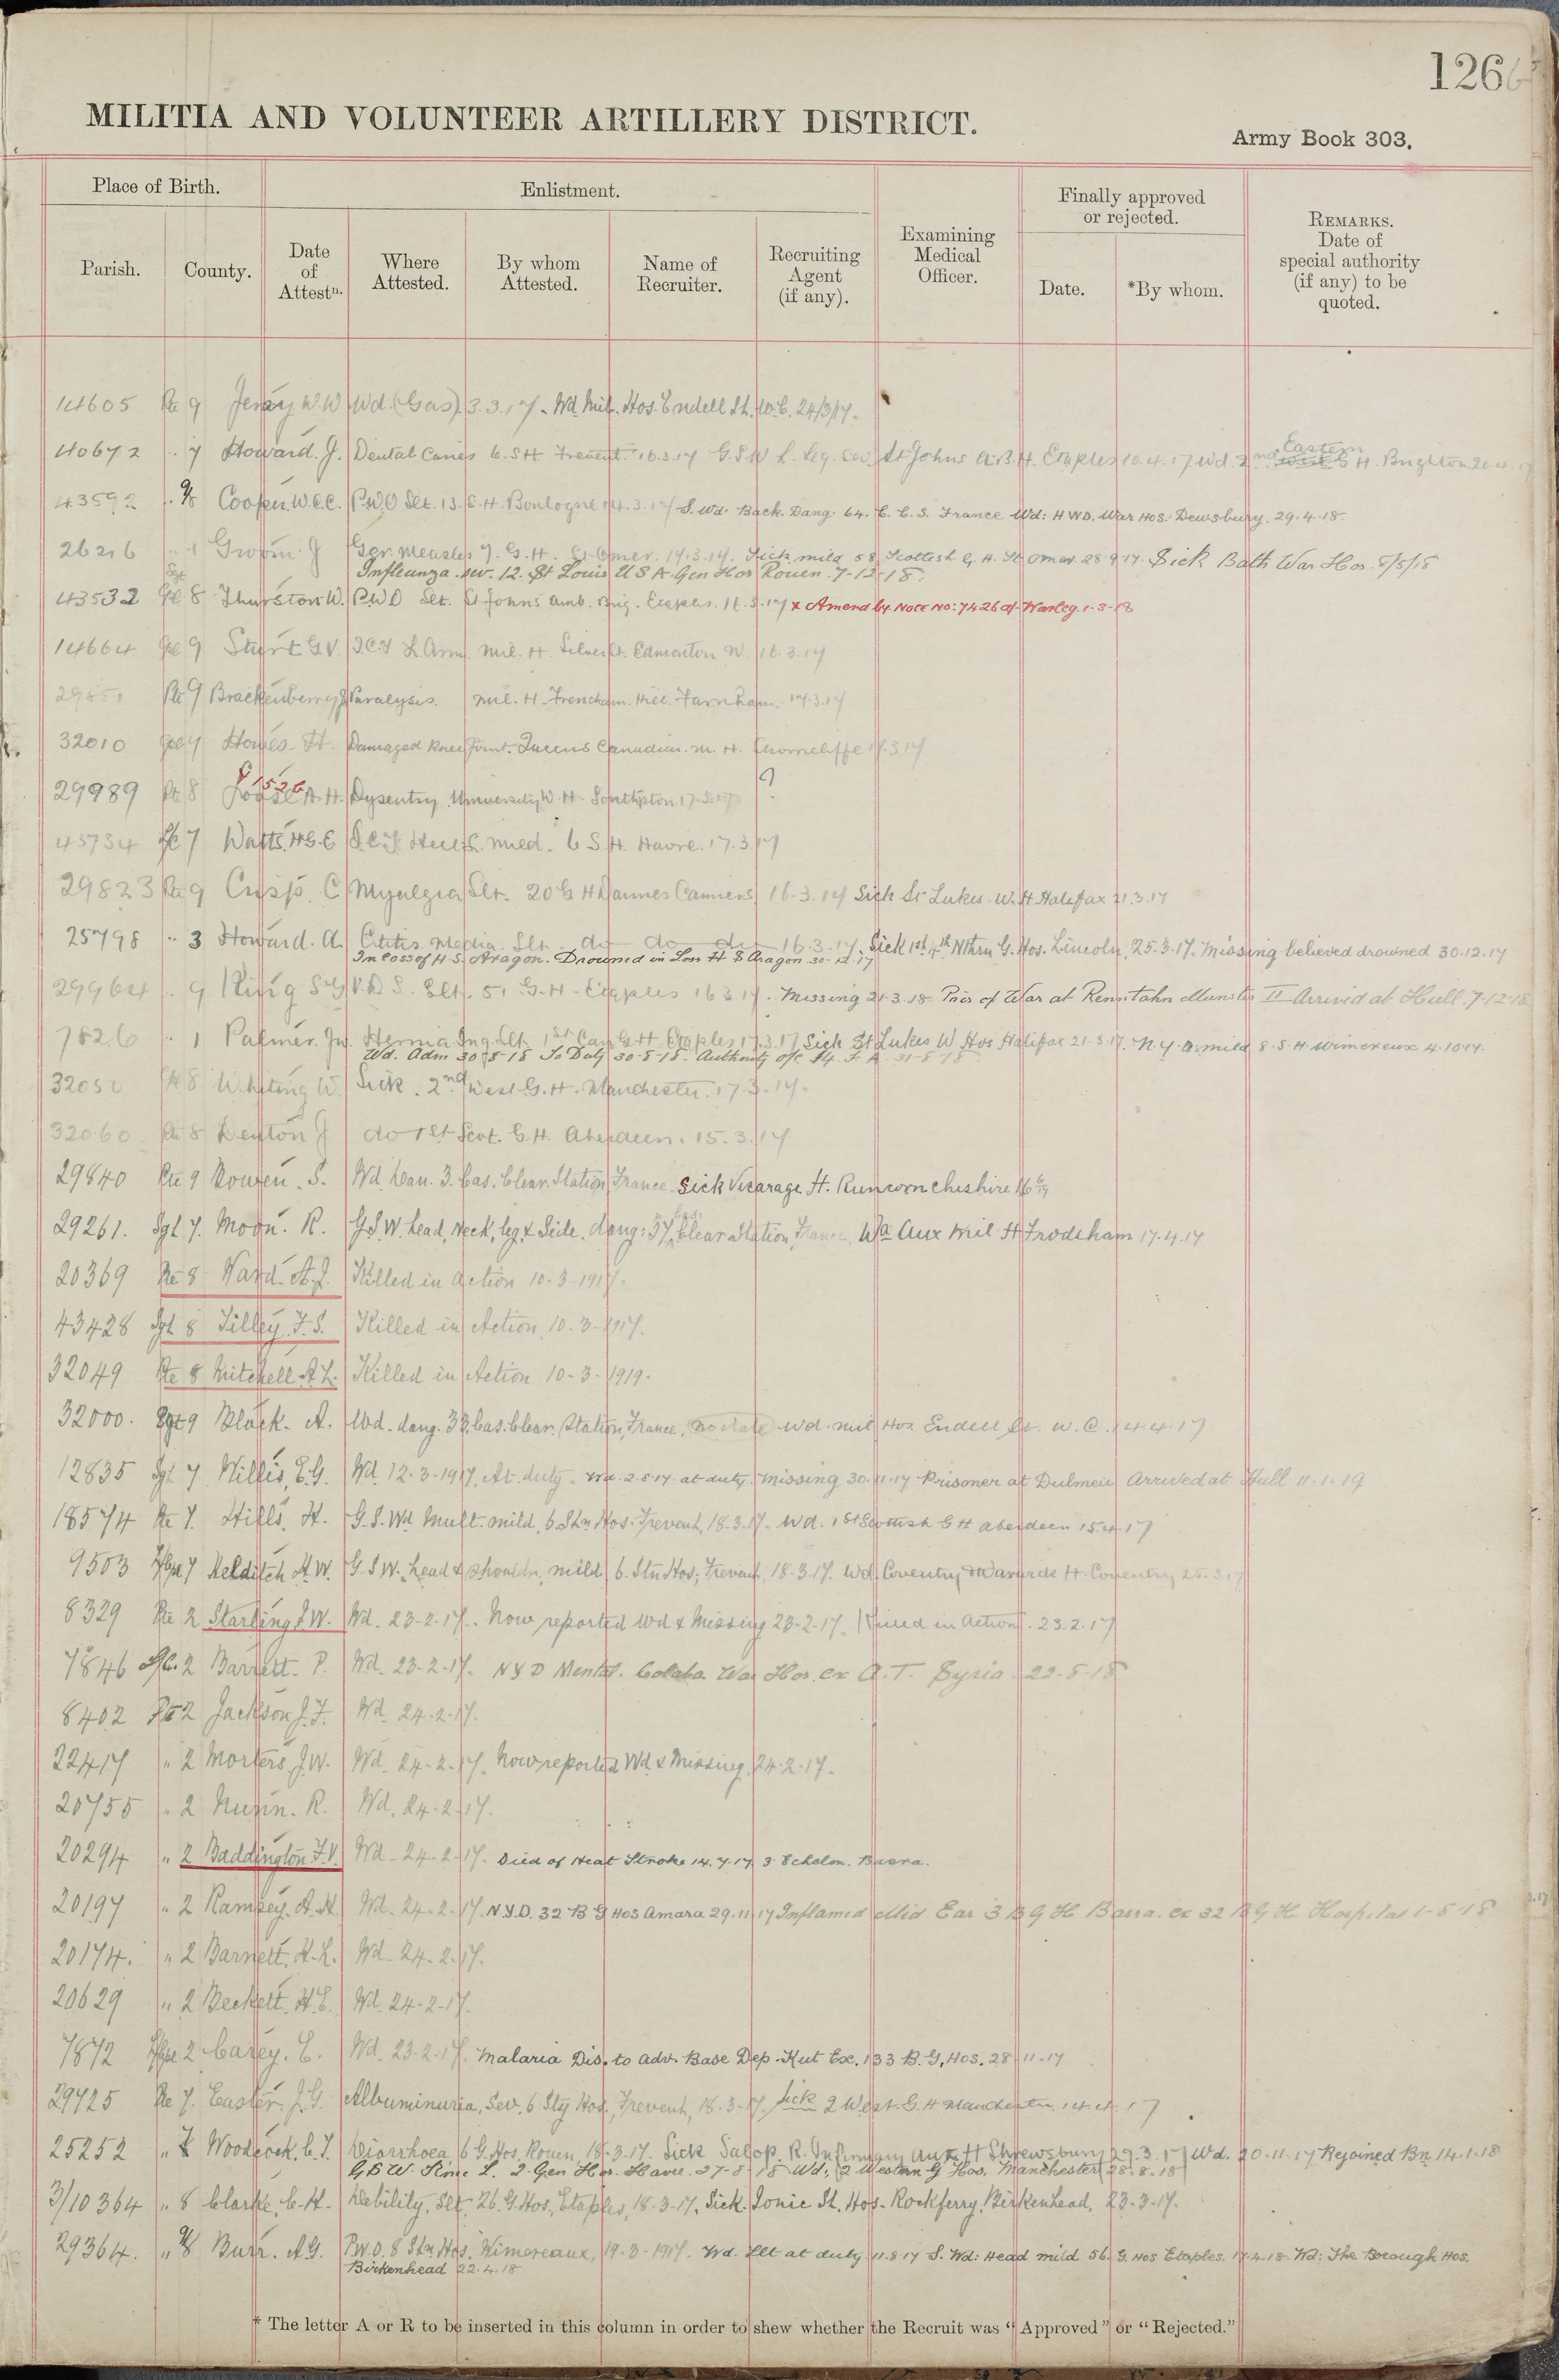 126
MILITIA AND VOLUNTEER ARTILLERY DISTRICT.
Army Book 303.
Place of Birth.
Enlistment.
Finally approved or rejected.
Parish.
County.
Date of Attestn.
Where Attested.
By whom Attested.
Name of Recruiter.
Recruiting Agent (if any).
Examining Medical Officer.
Date.
*By whom.
REMARKS. Date of special authority (if any) to be quoted.
14605 Pte 9 Jerry W.W Wd. (Gas) 3.3.17. Wd. Mil. Hos. Endell St. W.C. 24/3/17.
40672 .. 7 Howard. J. Dental Caries 6. S H Frevent 16.3.17 G.S.W L. Leg. Sev St Johns A.B.H. Etaples 10.4.17 Wd. 2nd Eastern G H. Brighton 20.4.17
43592 .. 9/8 Cooper. W.C.C. P.U.O Slt. 13. S.H. Boulogne 14.3.17 S. Wd. Back. Dang. 64. C.C.S. France Wd: H W D. War Hos: Dewsbury. 29.4.18.
26216 .. 1 Groom. J Ger. Measles 7. G.H. St Omer. 14.3.17. Sick mild 58 Scottish G. H. St Omer. 28.9.17. Sick Bath War Hos. 8/5/18
Infleunza. sev. 12. St Louis U S A. Gen Hos Rouen. 7-12-18.
43532 Pte 8 Thurston W. P.U.O Slt. St Johns Amb. Brig. Etaples. 16.3.17 x Amend by Note No: 7426 of Warley. 1-3-18
14664 Pte 9 Sturt G.V. I.C.T L Arm. Mil. H. Silver St. Edmonton N. 16.3.17
29850 Pte 9 Brackenberry J Paralysis. Mil. H. Frencham. Hill. Farnham. 17.3.17
32010 Pte 7 Howes. H. Damaged Knee Joint. Queens Canadian. M. H. Shorncliffe 17.3.17
29989 Pte 8 A.H. Dysentry University W. H. Southpton. 17.3.17 ?
43734 L/c 7 Watts. H.G.E I.C.T Heel S. mild. 6 S.H. Havre. 17.3.17
29823 Pte 9 Crisp. C Myalgia Slt. 20 G H Dannes Camiers 16.3.17 Sick St Lukes. W. H Halifax 21.3.17
25798 .. 3 Howard. A. Otitis Media. Slt. do do do 16.3.17. Sick 1st 4th Nthrn G. Hos. Lincoln, 25.3.17. Missing believed drowned 30.12.17
In loss of H.S. Aragon. Drowned in Loss H S Aragon 30-12-17
29964 .. 9 King S.G V.D.S. Slt. 51 G.H. Etaples 16.3.17. Missing 21.3.18 Pris of War at Rennbahn Munster II Arrived at Hull 7-12-18
7826 .. 1 Palmer. Jn. Hernia Ing. Slt. 1st Can G H Etaples 17.3.17 Sick St Lukes W Hos Halifax 21.3.17. N.Y.D. mild 8. S.H. Wimereux 4.10.17.
Wd. Adm 30-8-18 To Duty 30-8-18. Authority o/c 14. F A. 31-8-18
32050 Pte 8 Whiting W. Sick. 2nd West G.H. Manchester. 17.3.17.
32060 Pte 8 Denton J do 1st Scot. G.H. Aberdeen. 15.3.17
29840 Pte 9 Bowen. S. Wd. Dan. 3. Cas. Clear. Station, France. Sick Vicarage H. Runcorn Cheshire 16
29261. Sgt 7. Moon. R. G.S.W. head, neck, leg & side. dang: 37 Cas. Clear Station, France. Wd Aux Mil H Frodsham 17.4.17
20369 Pte 8 Ward. A.J. Killed in action 10-3-1917.
43428 Sgt 8 Tilley. F.S. Killed in Action, 10-3-1917.
32049 Pte 8 Mitchell. A.L. Killed in Action 10-3-1919.
32000. Sgt 9 Black. A. Wd. dang. 33. Cas. Clear. Station, France, no date Wd. mil Hos. Endell St. W.C. 14.4.17
12835 Sgt 7 Willis, E.G. Wd. 12-3-1917. At duty. Wd. 2.8.17. at duty. Missing 30.11.17 Prisoner at Dulmen Arrived at Hull 11.1.19
18574 Pte 7. Hills, H. G.S. Wd Mult. mild, 6 Stn. Hos. Frevent, 18.3.17. Wd. 1st Scottish G H Aberdeen 15.4.17
9503 7 Helditch H.W. G.S.W. head & shoulder, mild 6. Stn Hos; Frevent, 18.3.17. Wd. Coventry & Warwicks H. Coventry 25.3.17
8329 Pte 2 Starling J.W. Wd. 23-2-17. Now reported Wd & Missing 23-2-17. Killed in Action. 23.2.17
7846 L/C. 2 Barrett. P. Wd. 23-2-17. N Y D Mental. Colaba War Hos. ex A.T. Syria. 22-8-18
8402 Pte 2 Jackson J.F. Wd. 24-2-17.
22417 " 2 Morters, J.W. Wd. 24-2-17. Now reported Wd & Missing. 24-2-17.
20755 " 2 Nunn. R. Wd. 24-2-17.
20294 " 2 Baddington F.V. Wd. 24-2-17. Died of Heat Stroke 14.7.17 3 Echelon. Basra.
20197 " 2 Ramsey. A.H. Wd. 24-2-17. N.Y.D. 32 B G Hos Amara 29.11.17 Inflamed Mid Ear 3 B G H Basra. ex 32 B G H. Hospital 1-5-18
20174. " 2 Barnett. H.L. Wd. 24-2-17.
20629 " 2 Beckett. H.E. Wd. 24-2-17.
7872 2 Carey. E. Wd. 23-2-17. Malaria Dis. to Adv. Base Dep. Kut Ex. 133 B.G. Hos. 28.11.17
29725 Pte 7. Easter. J.G. Albuminuria, Sev. 6 Sty Hos., Frevent, 18-3-17. Sick 2 West. G.H Manchester. 14.4.17
25252 " 7 Woodcock. C.J. Diarrhoea, 6 G. Hos. Rouen, 18.3.17. Sick Salop. R. Infirmary Aux H Shrewsbury 29.3.17 Wd. 20.11.17 Rejoined Bn 14.1.18
G S W. Knee L. 2. Gen Hos. Havre. 27-8-18 Wd. 2 Western G Hos. Manchester 28.8.18
3/10364 " 8 Clarke. C.H. Debility, Slt. 26. G. Hos., Etaples, 18-3-17. Sick. Ionic St. Hos. Rockferry. Birkenhead, 23.3.17.
29364. " 9/8 Burr. A.G. P.U.O. 8 Stn. Hos. Wimereaux, 19-3-1917. Wd. Slt at duty 11.8.17 S. Wd: Head mild 56. G. Hos Etaples. 17.4.18 Wd: The Borough Hos.
Birkenhead 22.4.18
* The letter A or R to be inserted in this column in order to shew whether the Recruit was "Approved" or "Rejected."